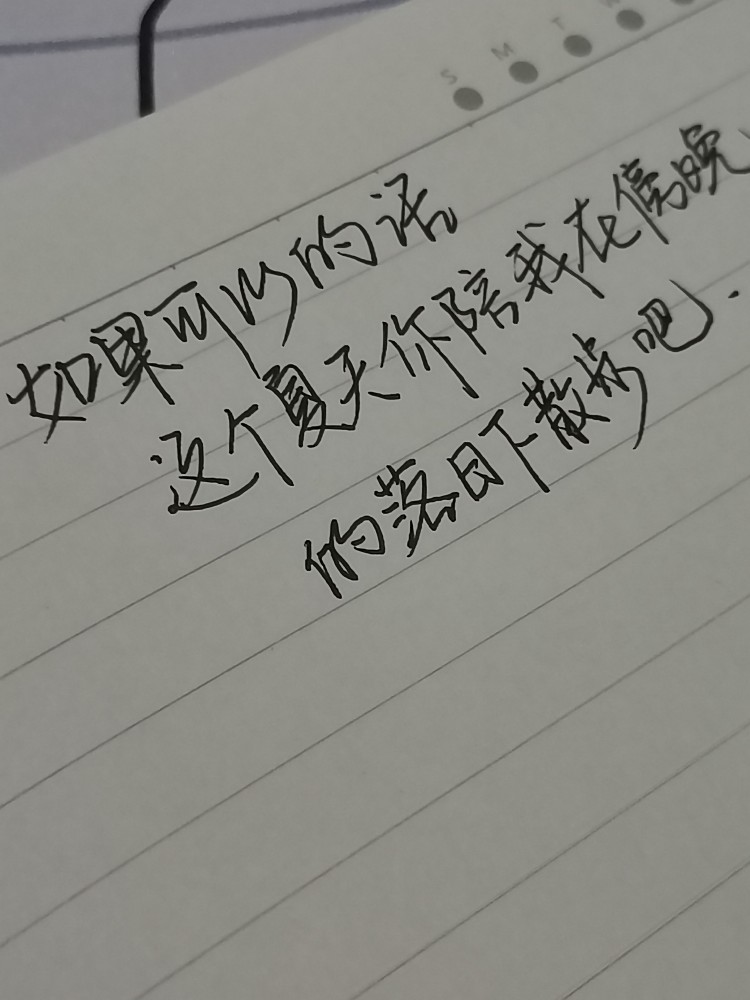 S M T W
如果可以的话。
这个夏天你陪我在傍晚
的落日下散步吧.